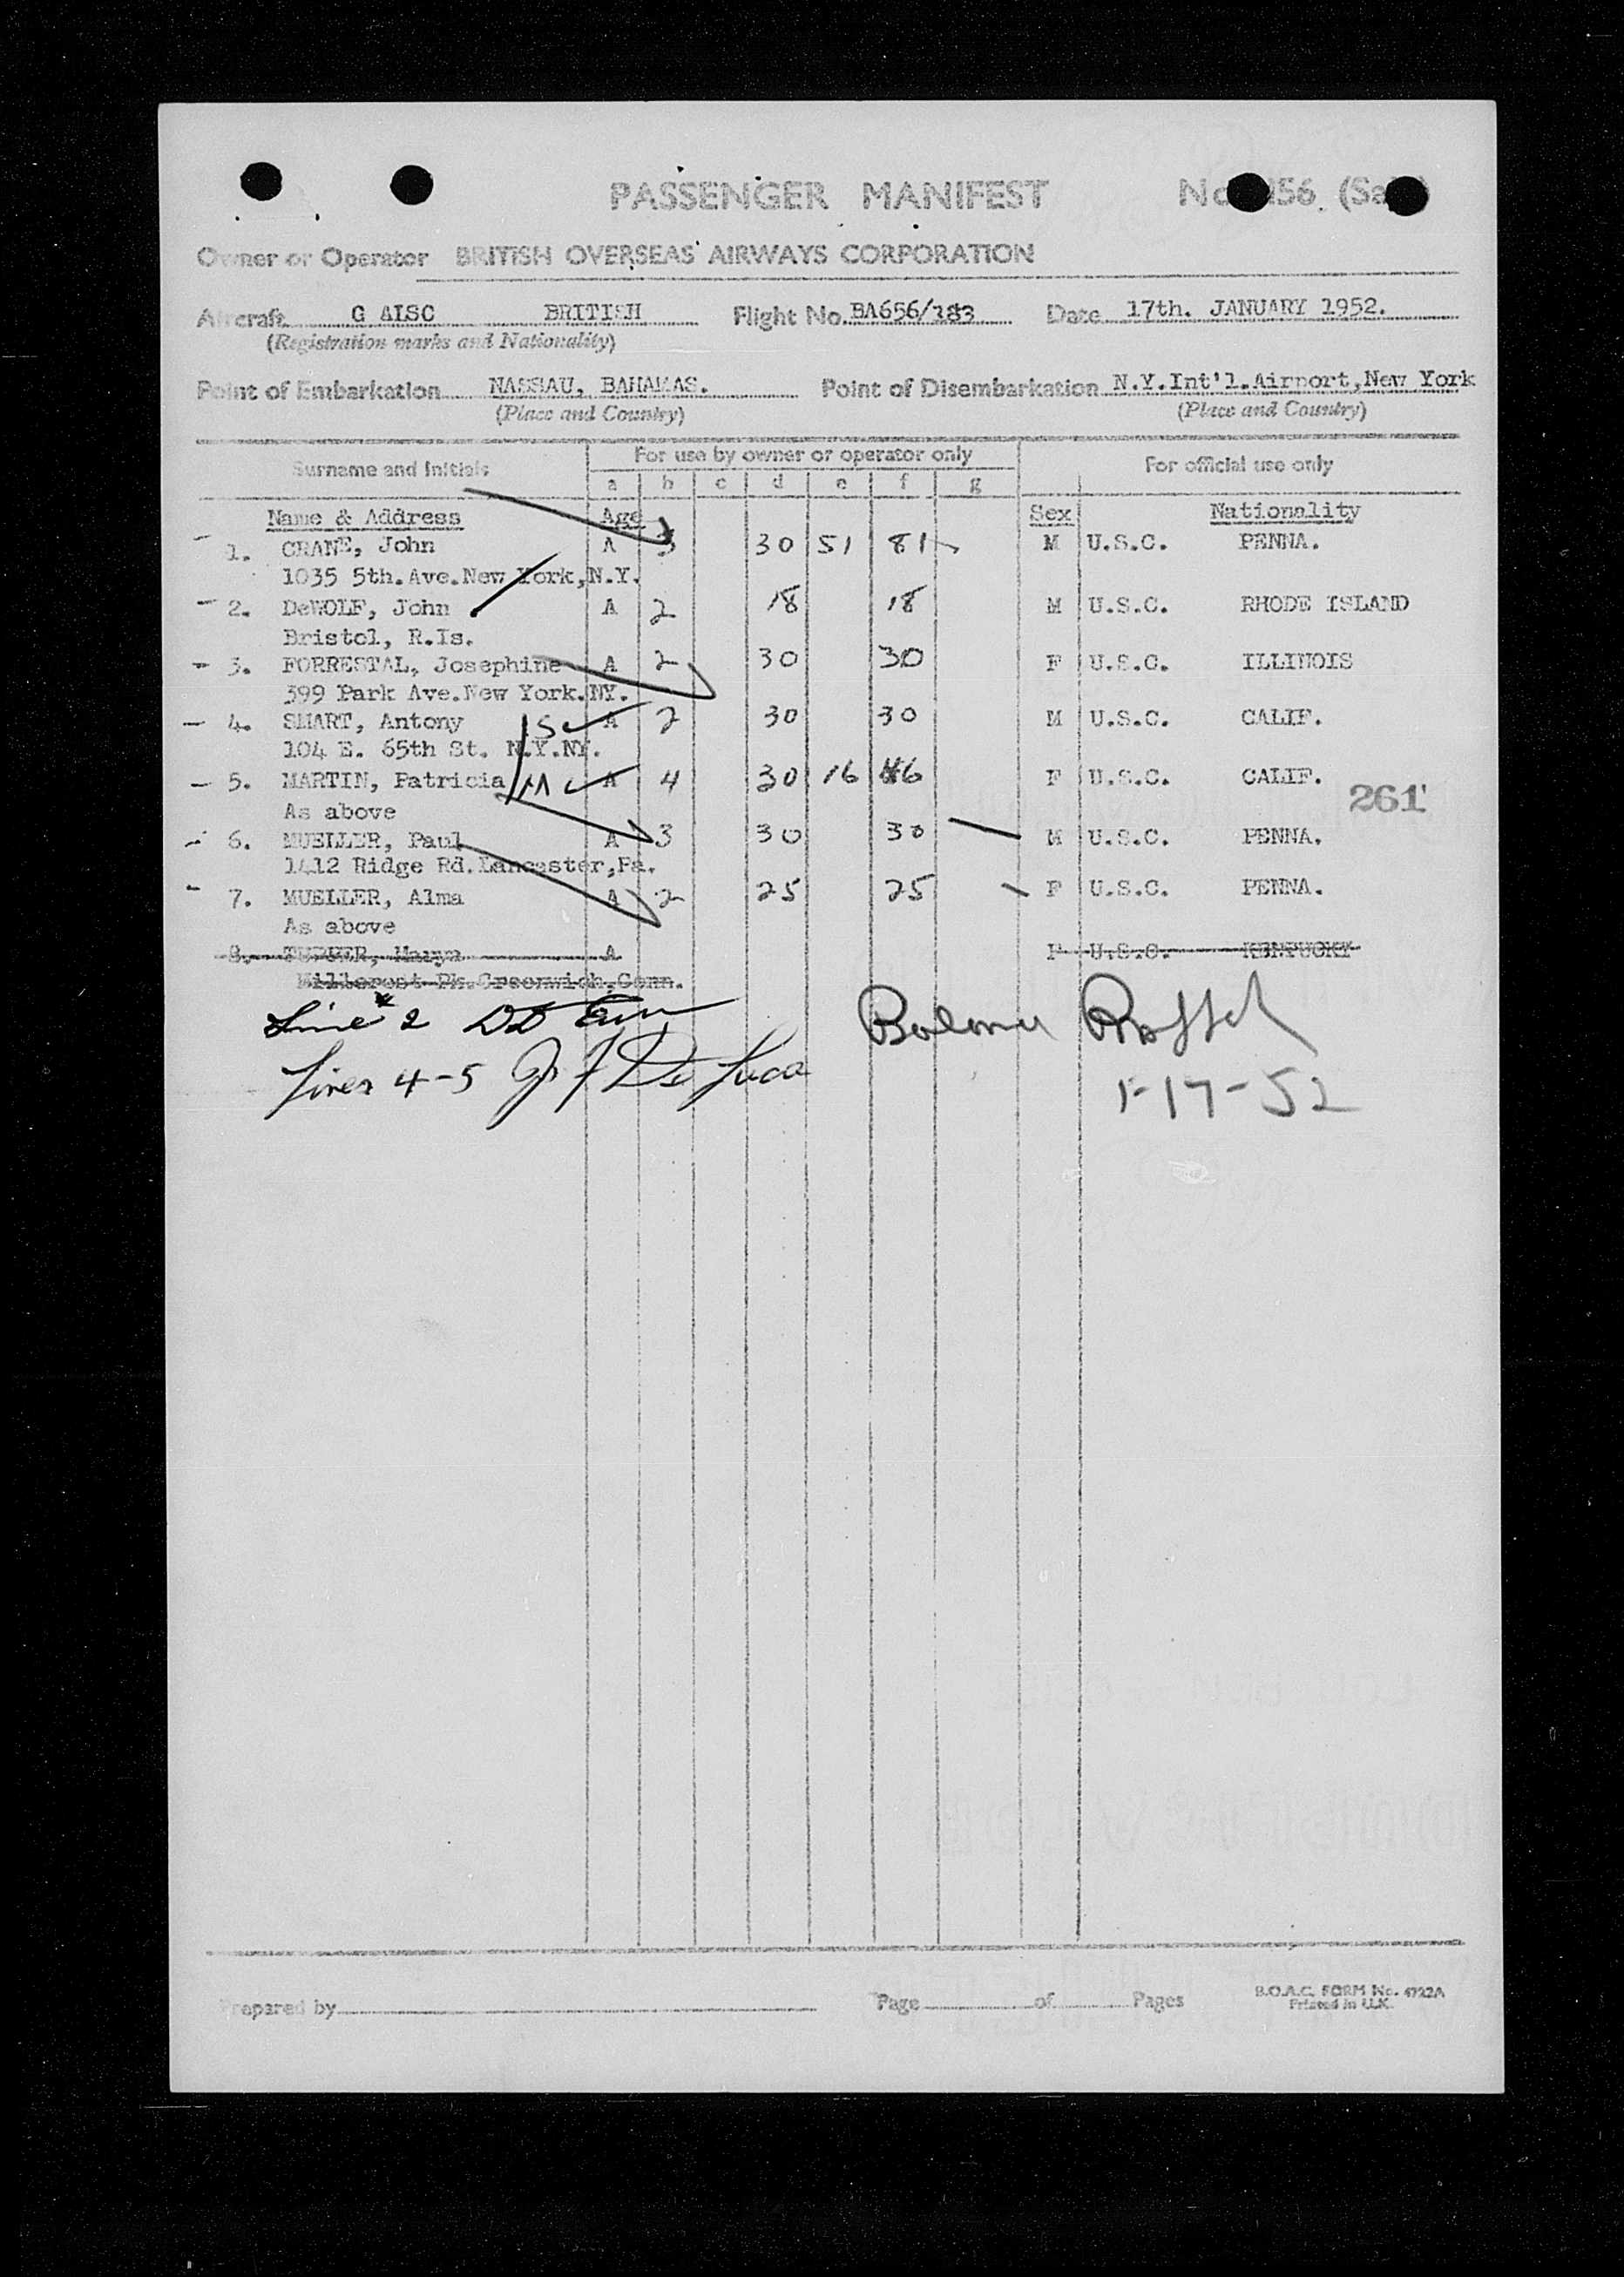 PASSENGER MANIFEST
Owner or Operator BRITISH OVERSEAS AIRWAYS CORPORATION
Aircraft G ALSC BRITISH Flight No. BA656/383 Date 17th. JANUARY 1952.
(Registration marks and Nationality)
Point of Embarkation NASSAU, BAHAMAS. Point of Disembarkation N.Y.Int'l.Airport,New York
(Place and Country) (Place and Country)
Surname and Initials For use by owner or operator only For official use only
a b c d e f g
Name & Address Age Sex Nationality
1. CRANE, John A 3 30 51 81 M U.S.C. PENNA.
1035 5th.Ave.New York,N.Y.
2. DeWOLF, John A 2 18 18 M U.S.C. RHODE ISLAND
Bristol, R.Is.
3. FORRESTAL, Josephine A 2 30 30 F U.S.C. ILLINOIS
399 Park Ave.New York.NY.
4. SMART, Antony S A 2 30 30 M U.S.C. CALIF.
104 E. 65th St. N.Y.NY.
5. MARTIN, Patricia M A 4 30 16 46 F U.S.C. CALIF.
As above 261
6. MUELLER, Paul A 3 30 30 M U.S.C. PENNA.
1412 Ridge Rd.Lancaster,Pa.
7. MUELLER, Alma A 2 25 25 F U.S.C. PENNA.
As above
8. A F U.S.C. KENTUCKY
Pk.Greenwich,Conn.
Line 2
Lines 4-5 J F De Luca
1-17-52
Prepared by Page of Pages B.O.A.C. FORM No. 4722A
Printed in U.K.